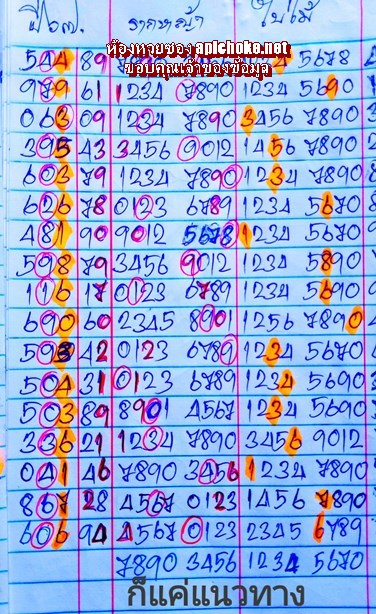 ปี๖๗. รากหญ้า ใบไม้
ห้องหวยซอง apichoke.net
ขอบคุณเจ้าของข้อมูล
544 89 4 5678
979 61 1234 7890 1234 5690
063 09 1234 7890 3456 7890
395 43 3456 9012 1456 7890
603 79 1234 7890 1234 7890
626 78 0123 6789 1234 5670
481 90 9012 5678 1234 5670
598 79 3456 9012 1234 5890
116 17 0123 6789 1234 5690
690 60 2345 8901 1256 7890
503 42 0123 6780 1234 5670
504 31 0123 6789 1234 5690
503 89 8901 4567 1234 5690
336 21 1234 7890 3456 9012
041 46 7890 3456 1234 7890
867 28 4567 0123 1456 7890
606 94 4567 0123 2345 6789
7890 3456 1234 5670
ก็แค่แนวทาง